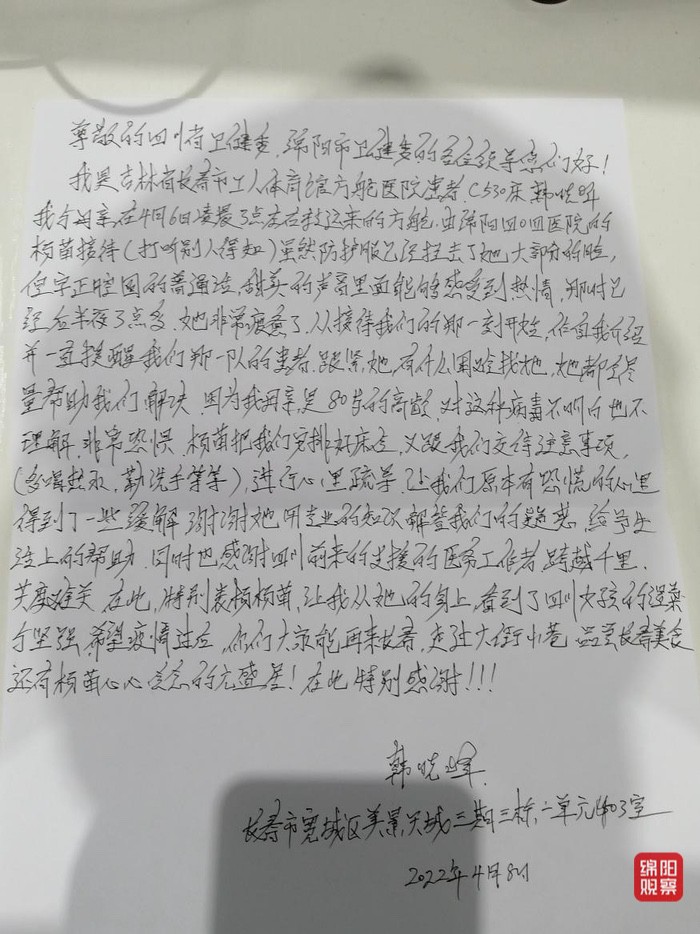 尊敬的四川省卫健委、绵阳市卫健委的各位领导您们好!
我是吉林省长春市工人体育馆方舱医院患者,C530床韩晓峰
我与母亲在4月6日凌晨3点左右转运来的方舱,由绵阳四0四医院的
杨苗接待(打听别人得知)虽然防护服已经挡去了她大部分的脸,
但字正腔圆的普通话,甜美的声音里面能够感受到热情,那时已
经后半夜3点多,她非常疲惫了,从接待我们的那一刻开始,作自我介绍
并一直提醒我们那一队的患者,跟紧她,有什么困难找她,她都会尽
量帮助我们解决,因为我母亲是80岁的高龄,对这种病毒不明白也不
理解,非常恐惧,杨苗把我们安排好床位,又跟我们交待注意事项,
(多喝热水,勤洗手等等),进行心里疏导,让我们原本有恐慌的心里
得到了一些缓解,谢谢她用专业的知识解答我们的疑惑,给予生
活上的帮助,同时也感谢四川前来的支援的医务工作者,跨越千里,
共度难关,在此,特别表扬杨苗,让我从她的身上,看到了四川女孩的温柔
与坚强,希望疫情过后,你们大家能再来长春,走过大街小巷,品尝长春美食
还有杨苗心心念念的元盛居!在此特别感谢!!!
韩晓峰
长春市宽城区美景天城三期三栋,二单元 室
2022年4月8日
绵阳
观察